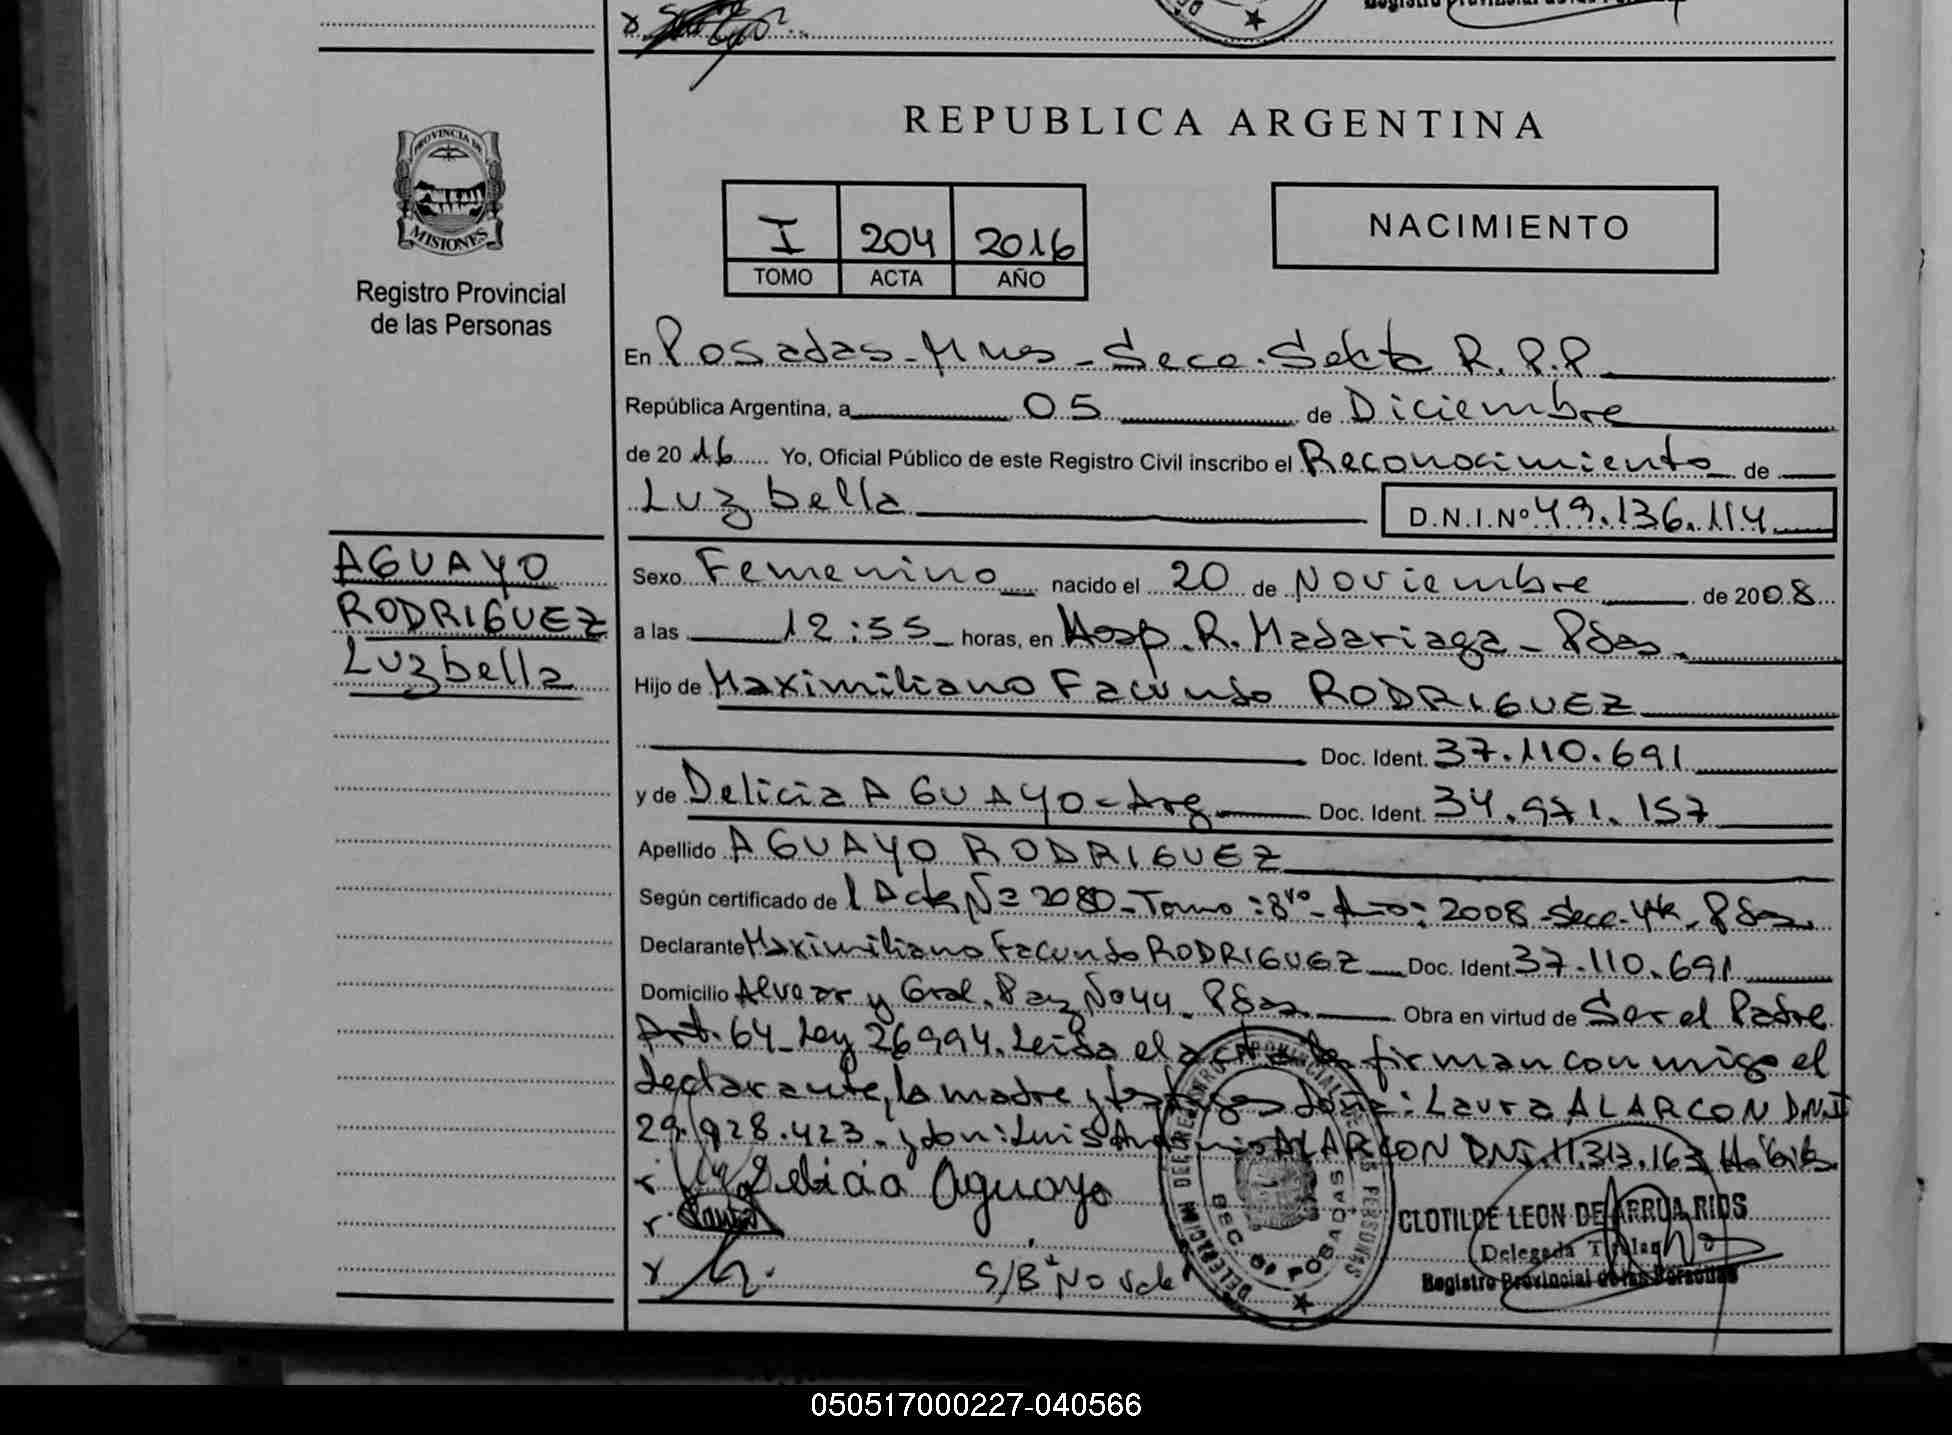 REPUBLICA ARGENTINA
PROVINCIA DE
MISIONES
Registro Provincial
de las Personas
I 204 2016
TOMO ACTA AÑO
NACIMIENTO
En Posadas - Mnes - Secc. Sexta R.P.P.
República Argentina, a 05 de Diciembre
de 2016 Yo, Oficial Público de este Registro Civil inscribo el Reconocimiento de
Luzbella D.N.I. Nº 49.136.114
AGUAYO
RODRIGUEZ
Luzbella
Sexo Femenino nacido el 20 de Noviembre de 2008
a las 12:55 horas, en Hosp. R. Madariaga - Pdas.
Hijo de Maximiliano Facundo RODRIGUEZ
Doc. Ident. 37.110.691
y de Delicia AGUAYO - Arg Doc. Ident. 34.971.157
Apellido AGUAYO RODRIGUEZ
Según certificado de l Acta Nº 2080 - Tomo: 8vo - Año: 2008 - Secc. 4ta - Pdas.
Declarante Maximiliano Facundo RODRIGUEZ Doc. Ident 37.110.691
Domicilio Alvear y Gral. Paz Nº 44 - Pdas. Obra en virtud de Ser el Padre
Art. 64 - Ley 26994. Leida el acta la firman conmigo el
declarante, la madre y testigos doña: Laura ALARCON D.N.I
29.928.423 - y don: Luis Antonio ALARCON DNI. 11.313.163 Habiles
Delicia Aguayo
S/B No Vale
SEC 6ª POSADAS
CLOTILDE LEON DE ARRUA RIOS
Delegada Titular
Registro Provincial de las Personas
050517000227-040566